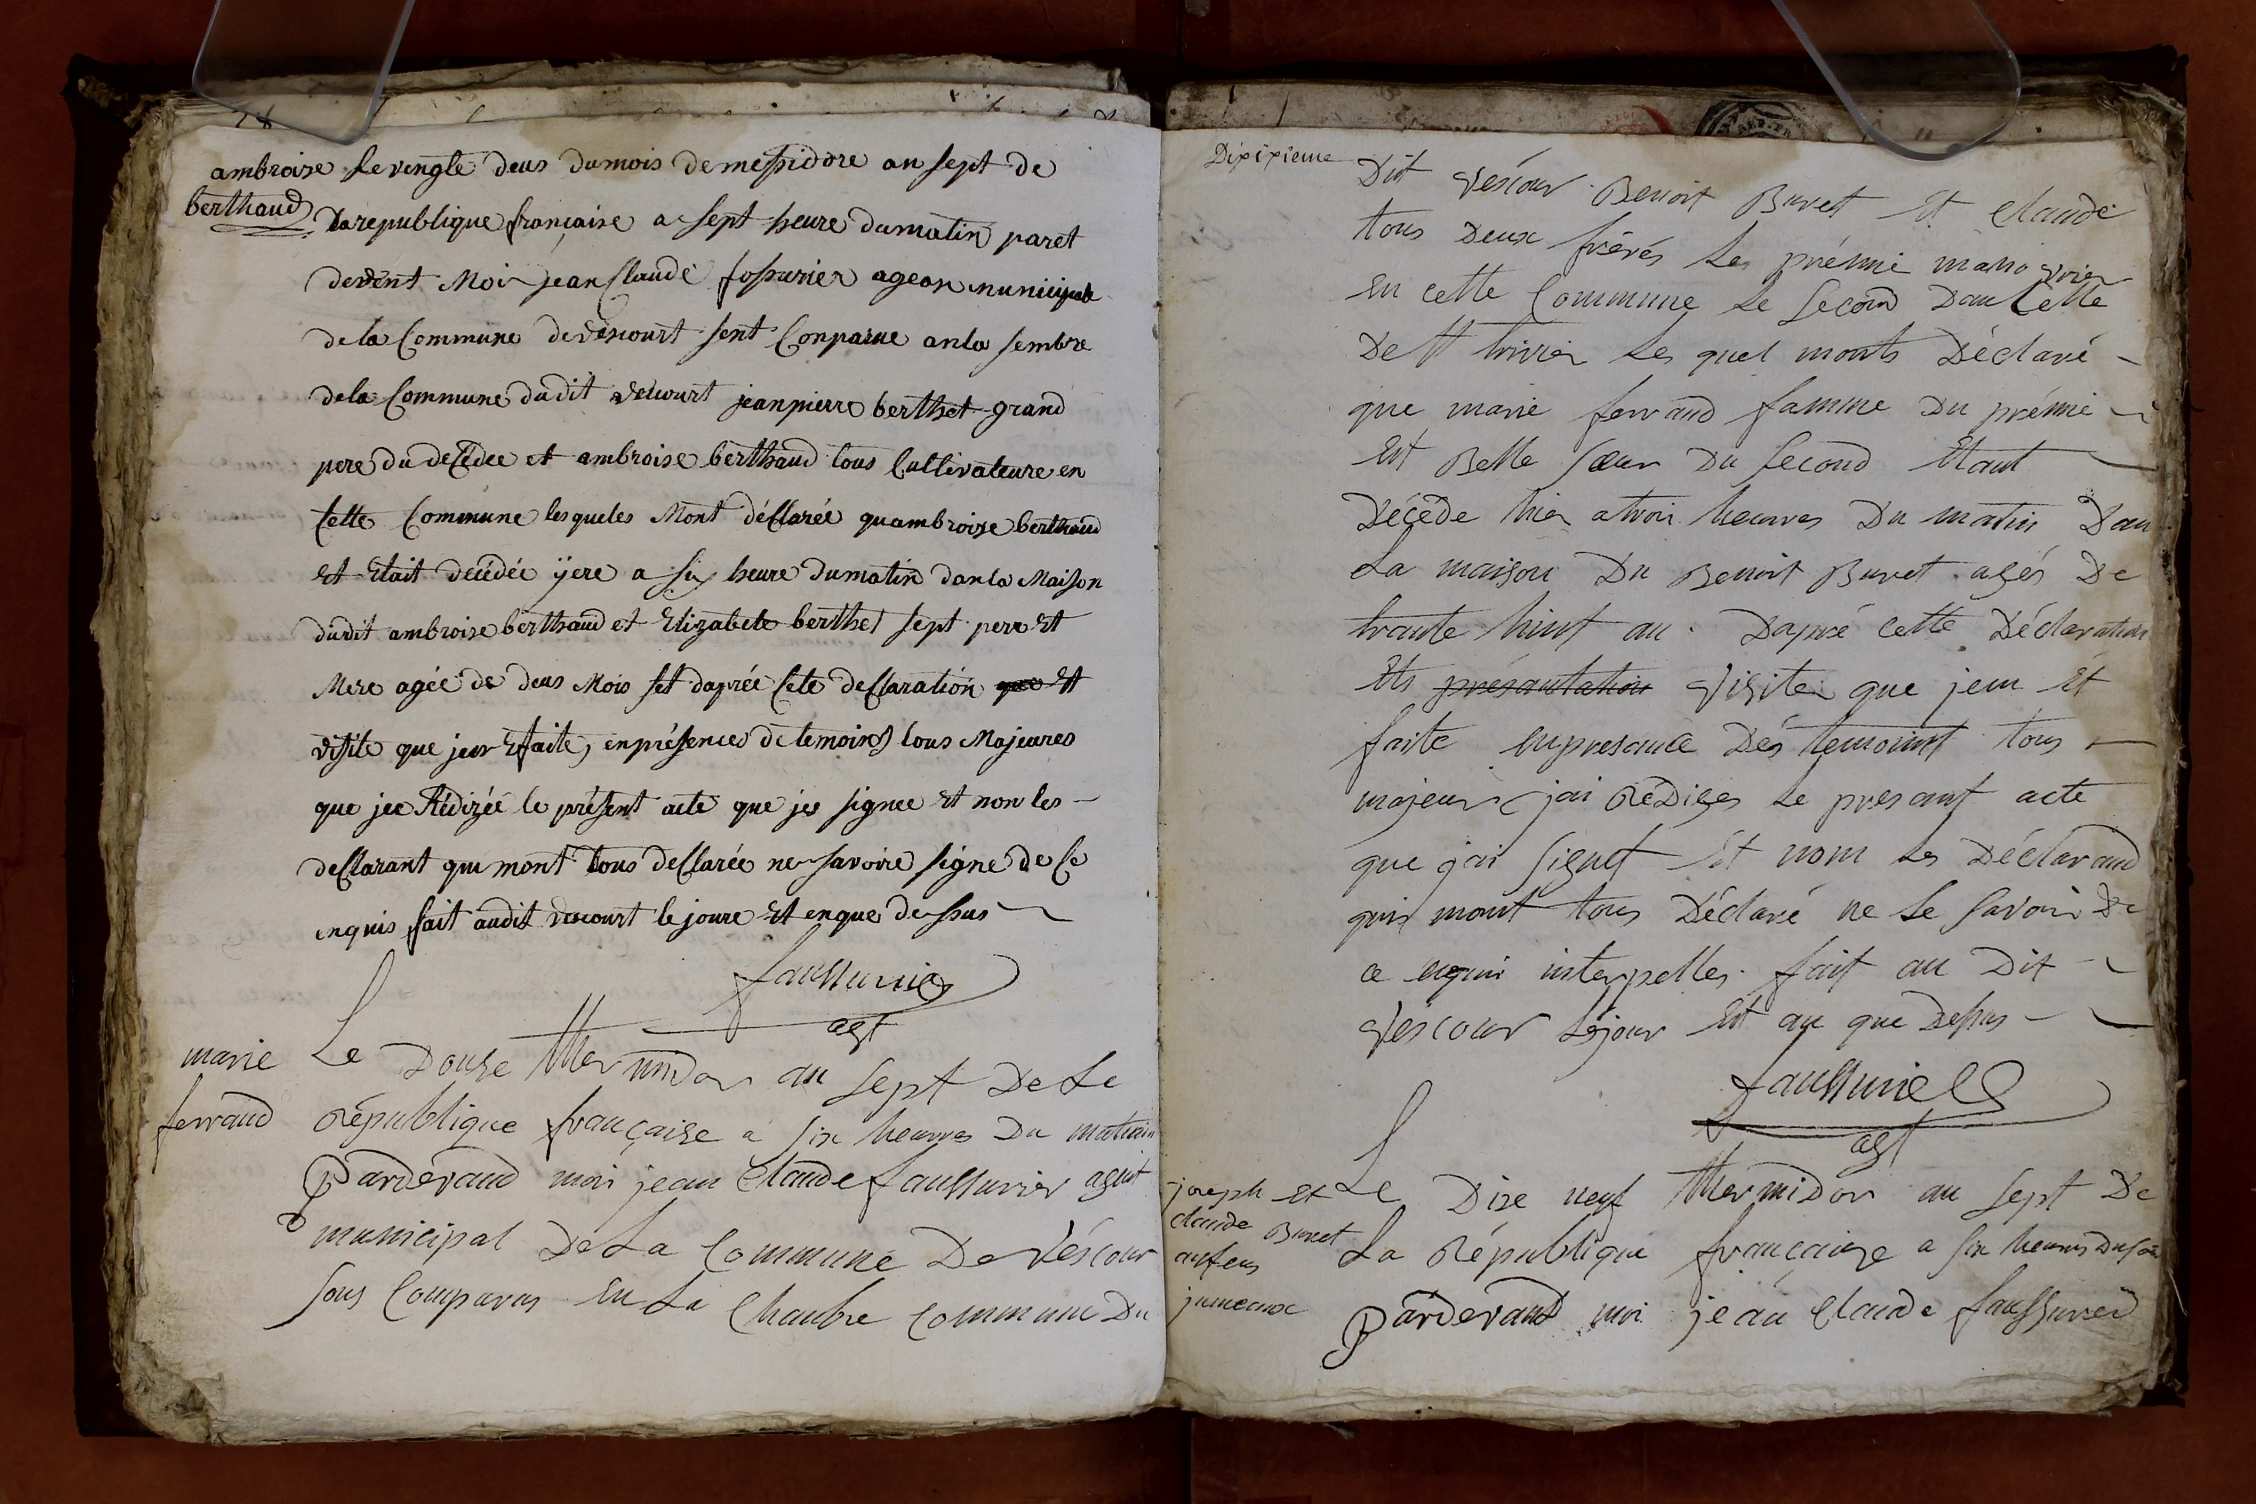 ambroise
berthaud
Le vengte deus du mois de messidore an sept de
La republique française a sept heure du matin paret
devent Moi jean Claude fossurier agean municipale
de la Commune de vescourt sent Conparue an la sembre
de la Commune dudit vescourt jean pierre berthet grand
pere du deCedee et ambroise berthaud tous Cultivateure en
Cette Commune les queles Mont déClarée qu ambroise berthaud
et Etait decédée ÿere a six heure du matin dan la Maison
dudit ambroise berthaud et Elizabete berthet sept pere et
Mere agée de deus Mois set daprée Cete deClaration que et
visite que jeer Efaite, en présence de temoires tous Majeures
que jee Rédizée le présent acte que je signee et non les
deClarant qui mont tous deClarée ne savoire signe de Ce
enquis fait audit vescourt le joure et en que dessus
faussurier
agt
marie
ferraud
Le Douze thermidor an sept De Le
République française a six heurres Du matain
Pardevand moi jean Claude faussurier agent
municipal De La Commune De Véscour
sons Comparus En La Chanbre Commune Du
Dixixieme
Dit Véscour Benoit Buvet Et Claude
tous Deux frérés Les prémié manovrier
En cette Commune Le Second Dan Celle
De St trivier Les quel monts Déclaré
que marie ferraud famme Du prémié
Est Belle sœur Du second Etant
Décéde hier a troi heurres Du matin Dan
La maison Du Benoit Buvet agés De
trante huit an Daprè cette Déclaration
Ets présantation Visiter que jeu Et
faite enpresance Dés temoint tous
majeur jai Rédiges Le presant acte
que jai signet Et nom Les Déclarand
quis mont tous Déclaré ne Le savoir De
ce enquis interpelles fait au Dit
Vescour Lejour Et an que Desus
faussurier
agt
joseph Et
claude Buvet
anfens
jumeaux
Le Dixe neuf thermidor an sept De
La République françaize a six heurres Du soir
Pardevand moi jean Claude faussurier